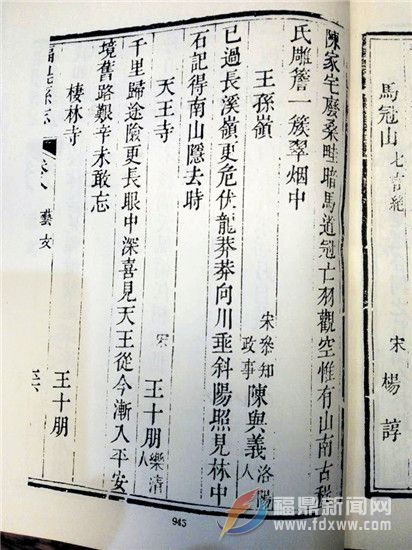 馬冠山 七言絕
宋 楊諄
陳家宅廢桑畦暗馬道冠亡羽觀空惟有山南古
氏雕簷一簇翠烟中
王孫嶺
宋參知政事 陳與義 洛陽人
已過長溪嶺更危伏龍莽莽向川垂斜陽照見林中
石記得南山隱去時
天王寺
宋 王十朋 樂清人
千里歸途險更長眼中深喜見天王從今漸入平安
境舊路艱辛未敢忘
棲林寺
王十朋
藝文
945
福鼎新闻网
www.fdxww.com